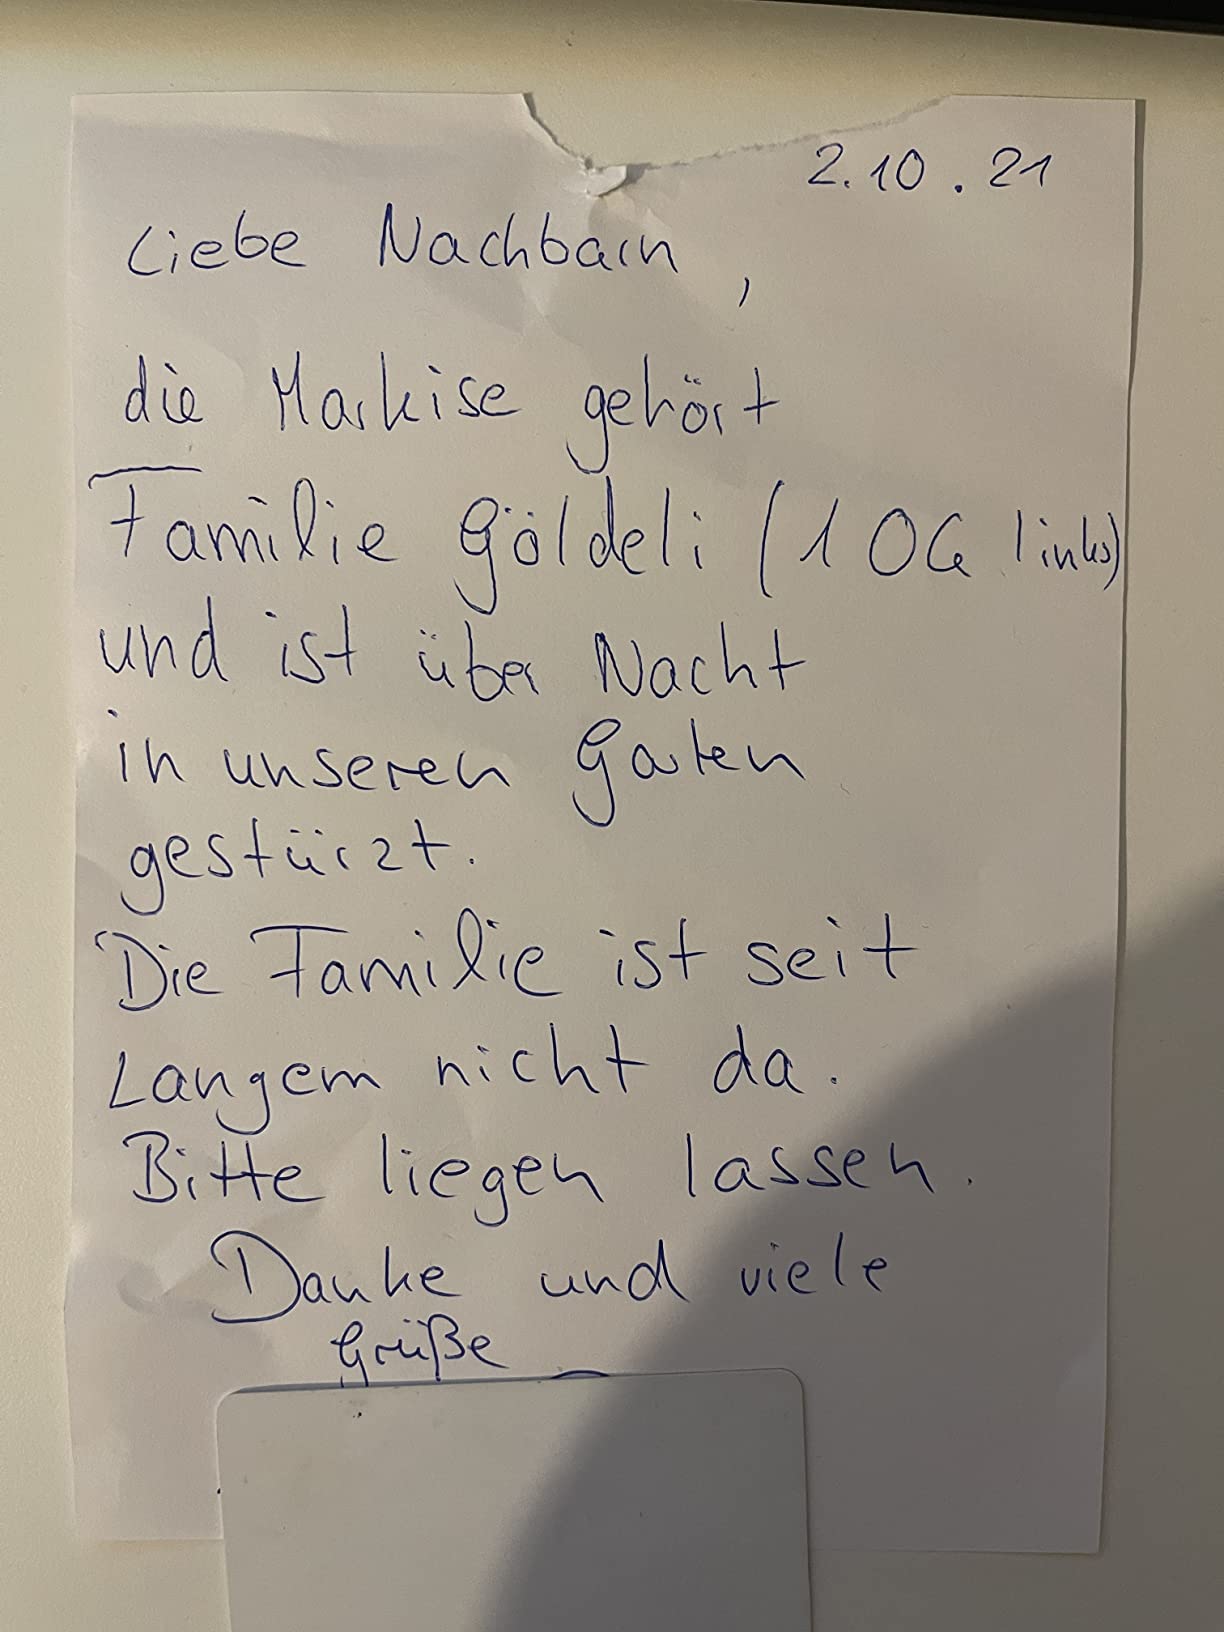 2.10.21
Liebe Nachbarn,
die Markise gehört
Familie Göldeli (1 OG links)
und ist über Nacht
in unseren Garten
gestürzt.
Die Familie ist seit
Langem nicht da.
Bitte liegen lassen.
Danke und viele
Grüße